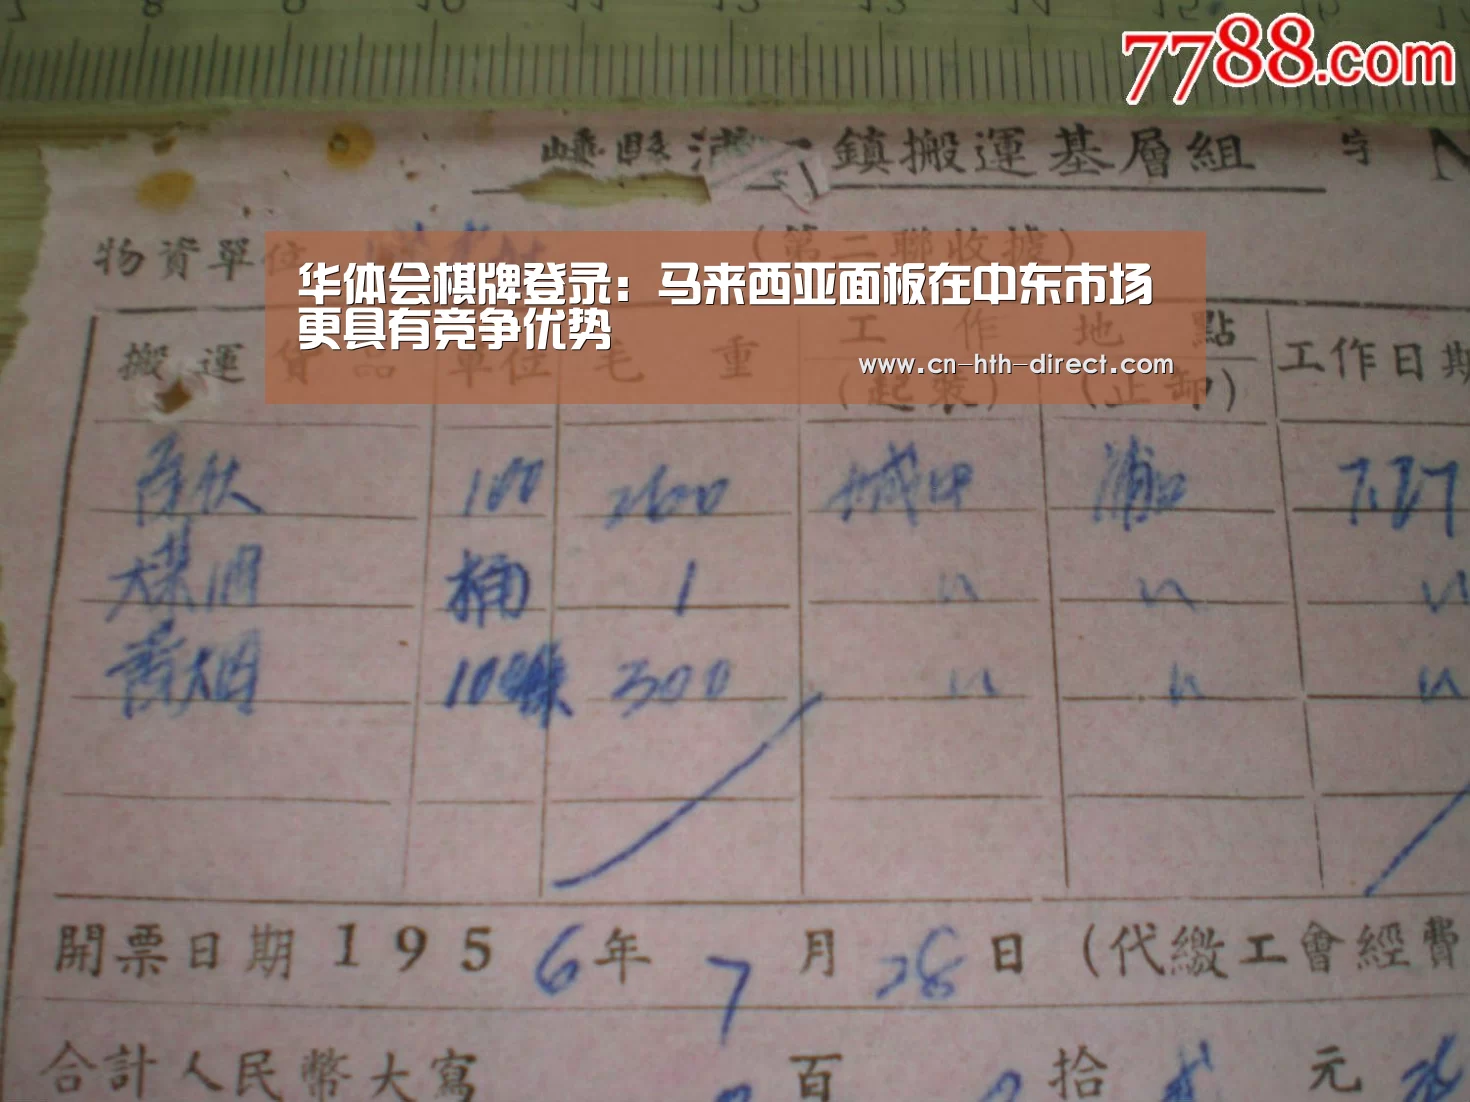 7788.com
嵊縣 鎮搬運基層組 字 N
物資單位 (第二聯收據)
华体会棋牌登录：马来西亚面板在中东市场
更具有竞争优势
www.cn-hth-direct.com
搬運貨品 單位 毛重 工作地點 工作日期
(起裝) (止卸)
100 2600 城中 浦口 7.27
桶 1 〃 〃 〃
300 〃 〃 〃
開票日期1956年7月28日(代繳工會經費
合計人民幣大寫 百 拾 元